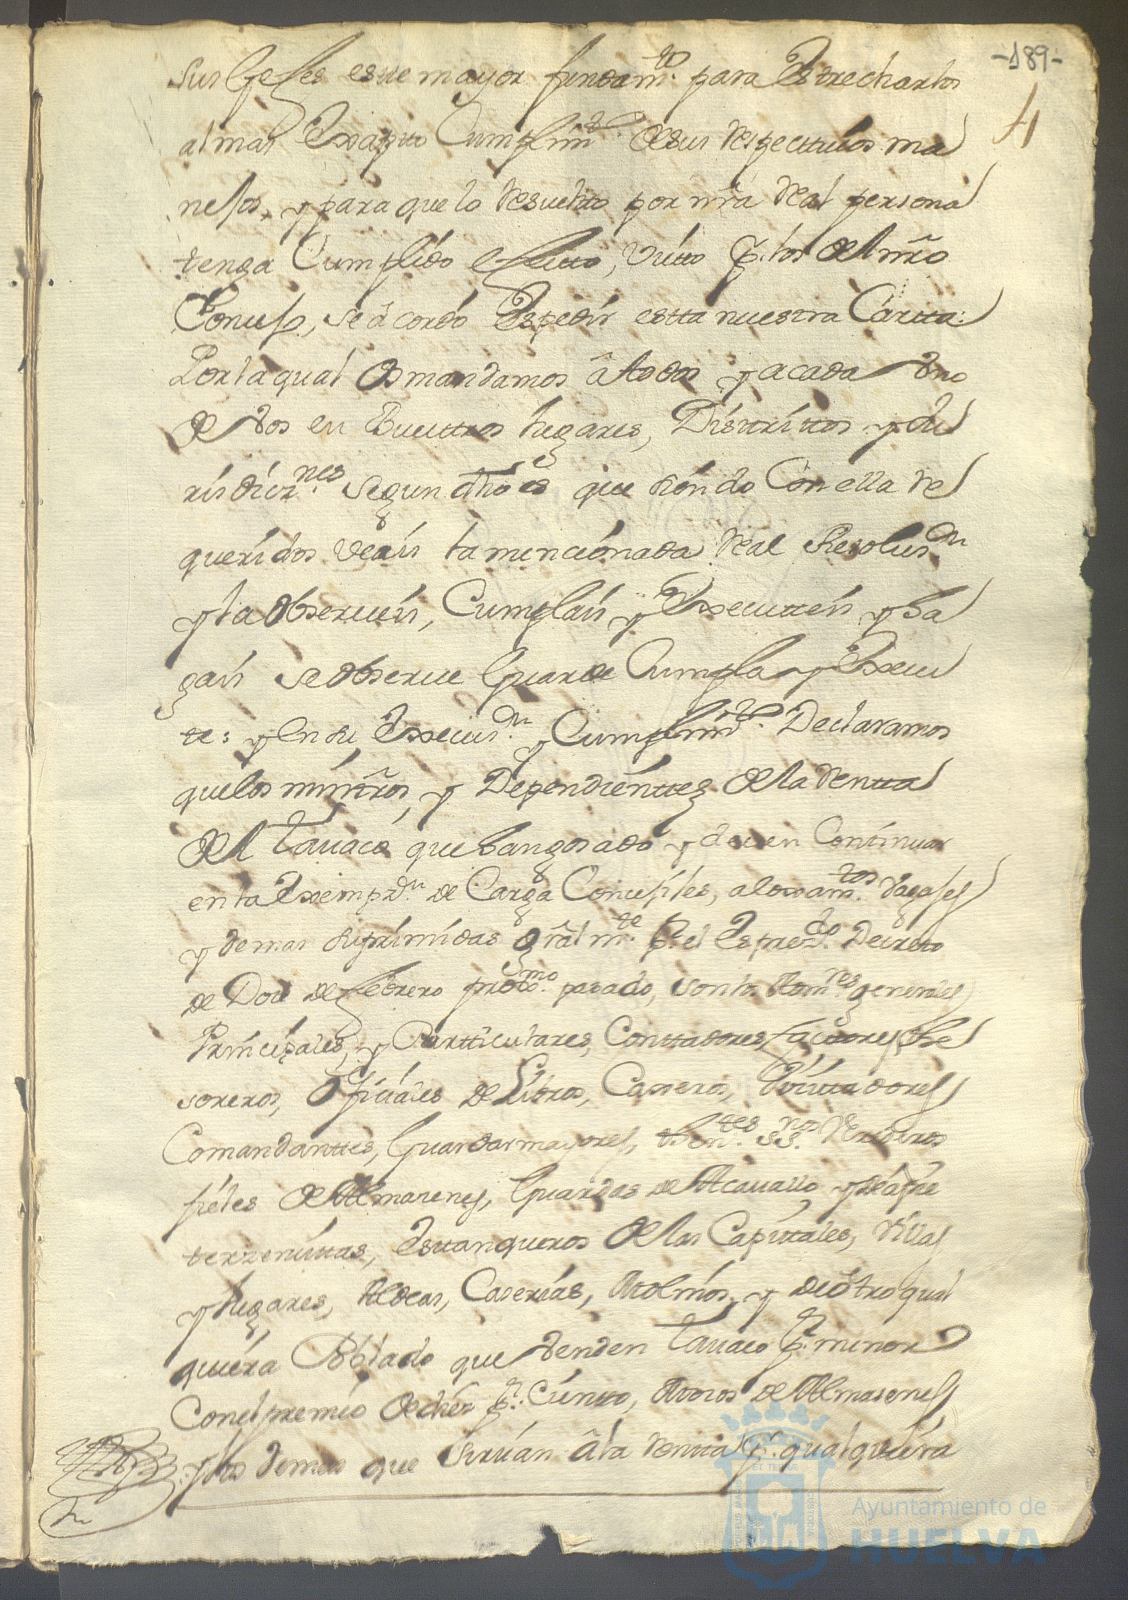 -189-
4
sus Gefes este mayor fundam.to para Estrecharlos
al mas Exapto Cumplim.to de sus respectiuos ma
nejos, y para que lo resuelto por nr̃a Real persona
tenga Cumplido efecto, Visto p.r los del nrõ
Consejo, se acordó Espedir estta nuestra Cartta:
Por la qual Os mandamos â ttodos y a cada Vno
de Vos en Vuesttros lugares, Disttrittos y Ju
risdiz.nes segun dho es que siendo Con ella re
queridos Veais la mencionada Real Resoluz.on
y la Obserueis, Cumplais y Executteis y ha
gais se Obserue Guarde Cumpla y Execu
te: y en su Execuz.on y Cumplim.to Declaramos
que los minisrõs, y Dependienttes de la Rentta
del Tauaco que han gosado y deuen Continuar
en la Exempz.on de Carga Consejiles, aloxam.tos Vagajes
y demas suprimidas grãl m.te p.r el Espres.do Decreto
de Doze de febrero prox.mo pasado, son los Adm.res generales
Principales, y Partticulares, Conttadores, factores, the
soreros, Oficiales de Libros, Caxeros, Visitadores
Comandanttes, Guardas mayores, then.tes ss.nos Veederos
fieles de Almazenes, Guardas de Acauallo y de â pie
terzenistas, Esttanqueros de las Capitales, Villas
y lugares, Aldeas, Caserias, Molinos, y de otro qual
quiera Poblado que Venden Tauaco p.r menor
Con el premio de diez p.r Ciento, Mozos de Almasenes
y los demas que siruan â la Rentta p.r qualquiera
Ayuntamiento de
HUELVA